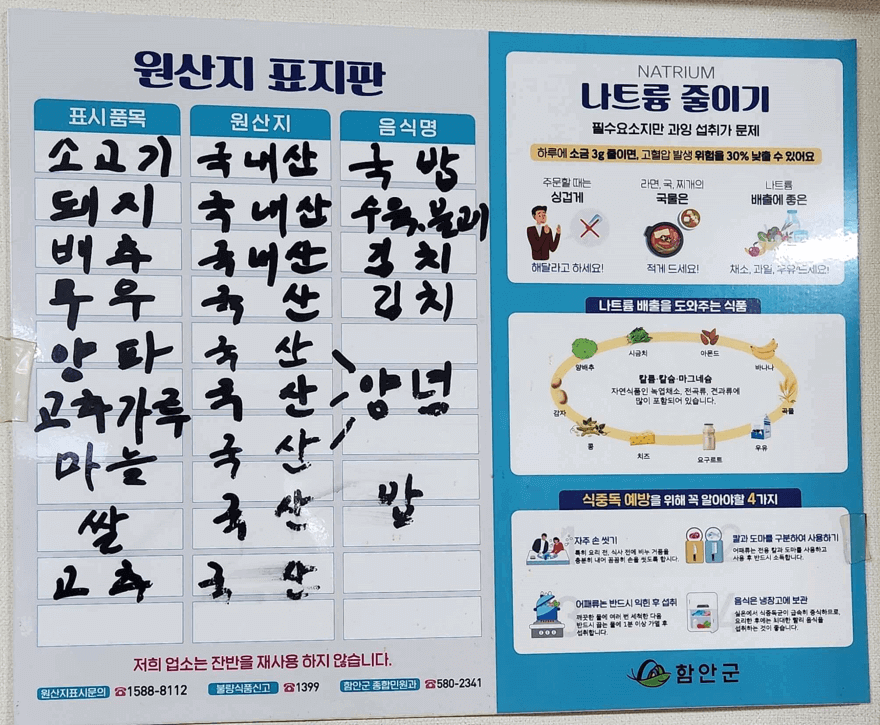 원산지 표지판
표시품목 원산지 음식명
소고기 국내산 국밥
돼지 국내산 수육,불고기
배추 국내산 김치
무우 국 산 김치
양파 국 산
고추가루 국 산 양념
마늘 국 산
쌀 국 산 밥
고추 국 산
저희 업소는 잔반을 재사용 하지 않습니다.
원산지표시문의 ☎1588-8112 불량식품신고 ☎1399 함안군 종합민원과 ☎580-2341
NATRIUM
나트륨 줄이기
필수요소지만 과잉 섭취가 문제
하루에 소금 3g 줄이면, 고혈압 발생 위험을 30% 낮출 수 있어요
주문할 때는
싱겁게
해달라고 하세요!
라면, 국, 찌개의
국물은
적게 드세요!
나트륨
배출에 좋은
채소, 과일, 우유 드세요!
나트륨 배출을 도와주는 식품
양배추
시금치
아몬드
바나나
칼륨·칼슘·마그네슘
자연식품인 녹엽채소, 전곡류, 견과류에
많이 포함되어 있습니다.
감자
곡물
콩
치즈
요구르트
우유
식중독 예방을 위해 꼭 알아야할 4가지
자주 손 씻기
특히 요리 전, 식사 전에 비누 거품을
충분히 내어 꼼꼼히 손을 씻도록 합시다.
칼과 도마를 구분하여 사용하기
어패류는 전용 칼과 도마를 사용하고
사용 후 반드시 소독합니다.
어패류는 반드시 익힌 후 섭취
깨끗한 물에 여러 번 세척한 다음
반드시 끓는 물에 1분 이상 가열 후
섭취합니다.
음식은 냉장고에 보관
실온에서 식중독균이 급속히 증식하므로,
요리한 후에는 최대한 빨리 음식을
섭취하는 것이 좋습니다.
함안군